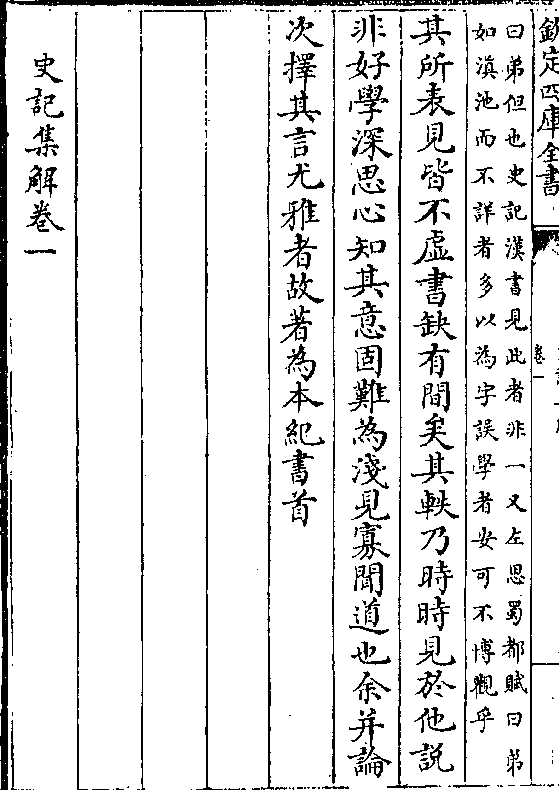 欽定四庫全書
卷一
曰弟但也史記漢書見此者非一又左思蜀都賦曰弟
如滇池而不詳者多以為字誤學者安可不博觀乎
其所表見皆不虚書缺有間矣其軼乃時時見於他說
非好學深思心知其意固難為淺見寡聞道也余并論
次擇其言尤雅者故著為本紀書首
史記集解卷一